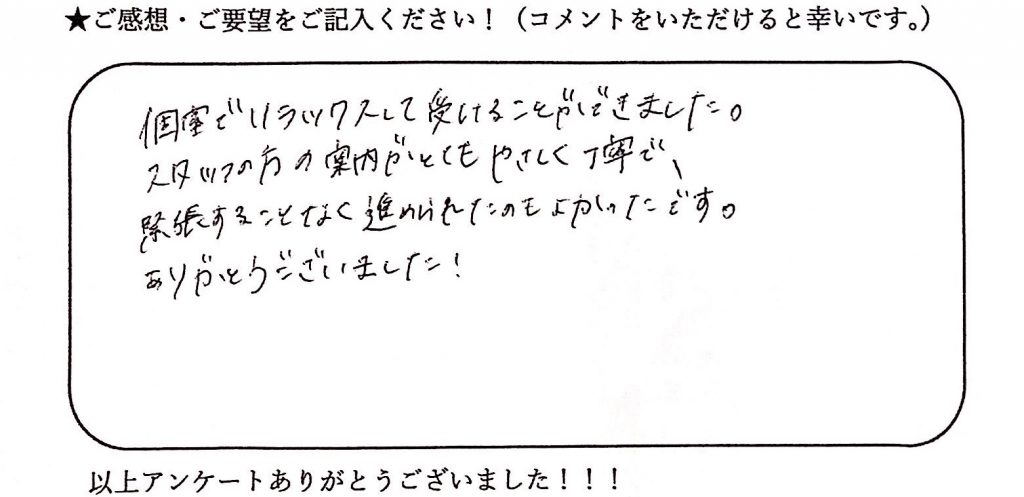 ★ご感想・ご要望をご記入ください！（コメントをいただけると幸いです。）
個室でリラックスして受けることができました。
スタッフの方の案内がとてもやさしく丁寧で、
緊張することなく進められたのもよかったです。
ありがとうございました！
以上アンケートありがとうございました！！！